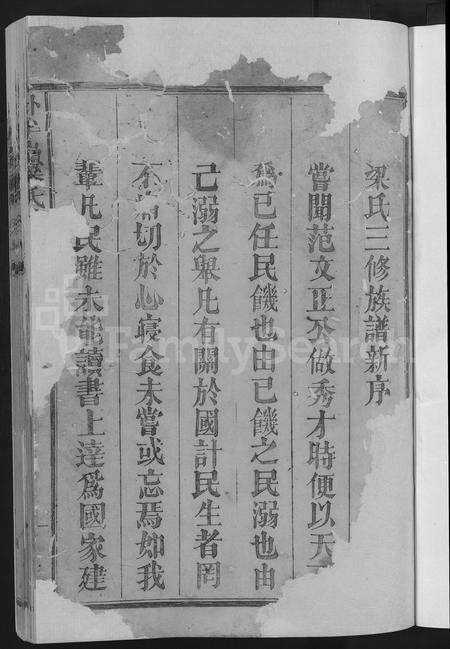 梁氏三修族譜新序
嘗聞范文正公做秀才時便以天下
為己任民饑也由己饑之民溺也由
己溺之舉凡有關於國計民生者罔
不 切於心寢食未嘗或忘焉如我
輩凡民雖未能讀書上達為國家建
FamilySearch